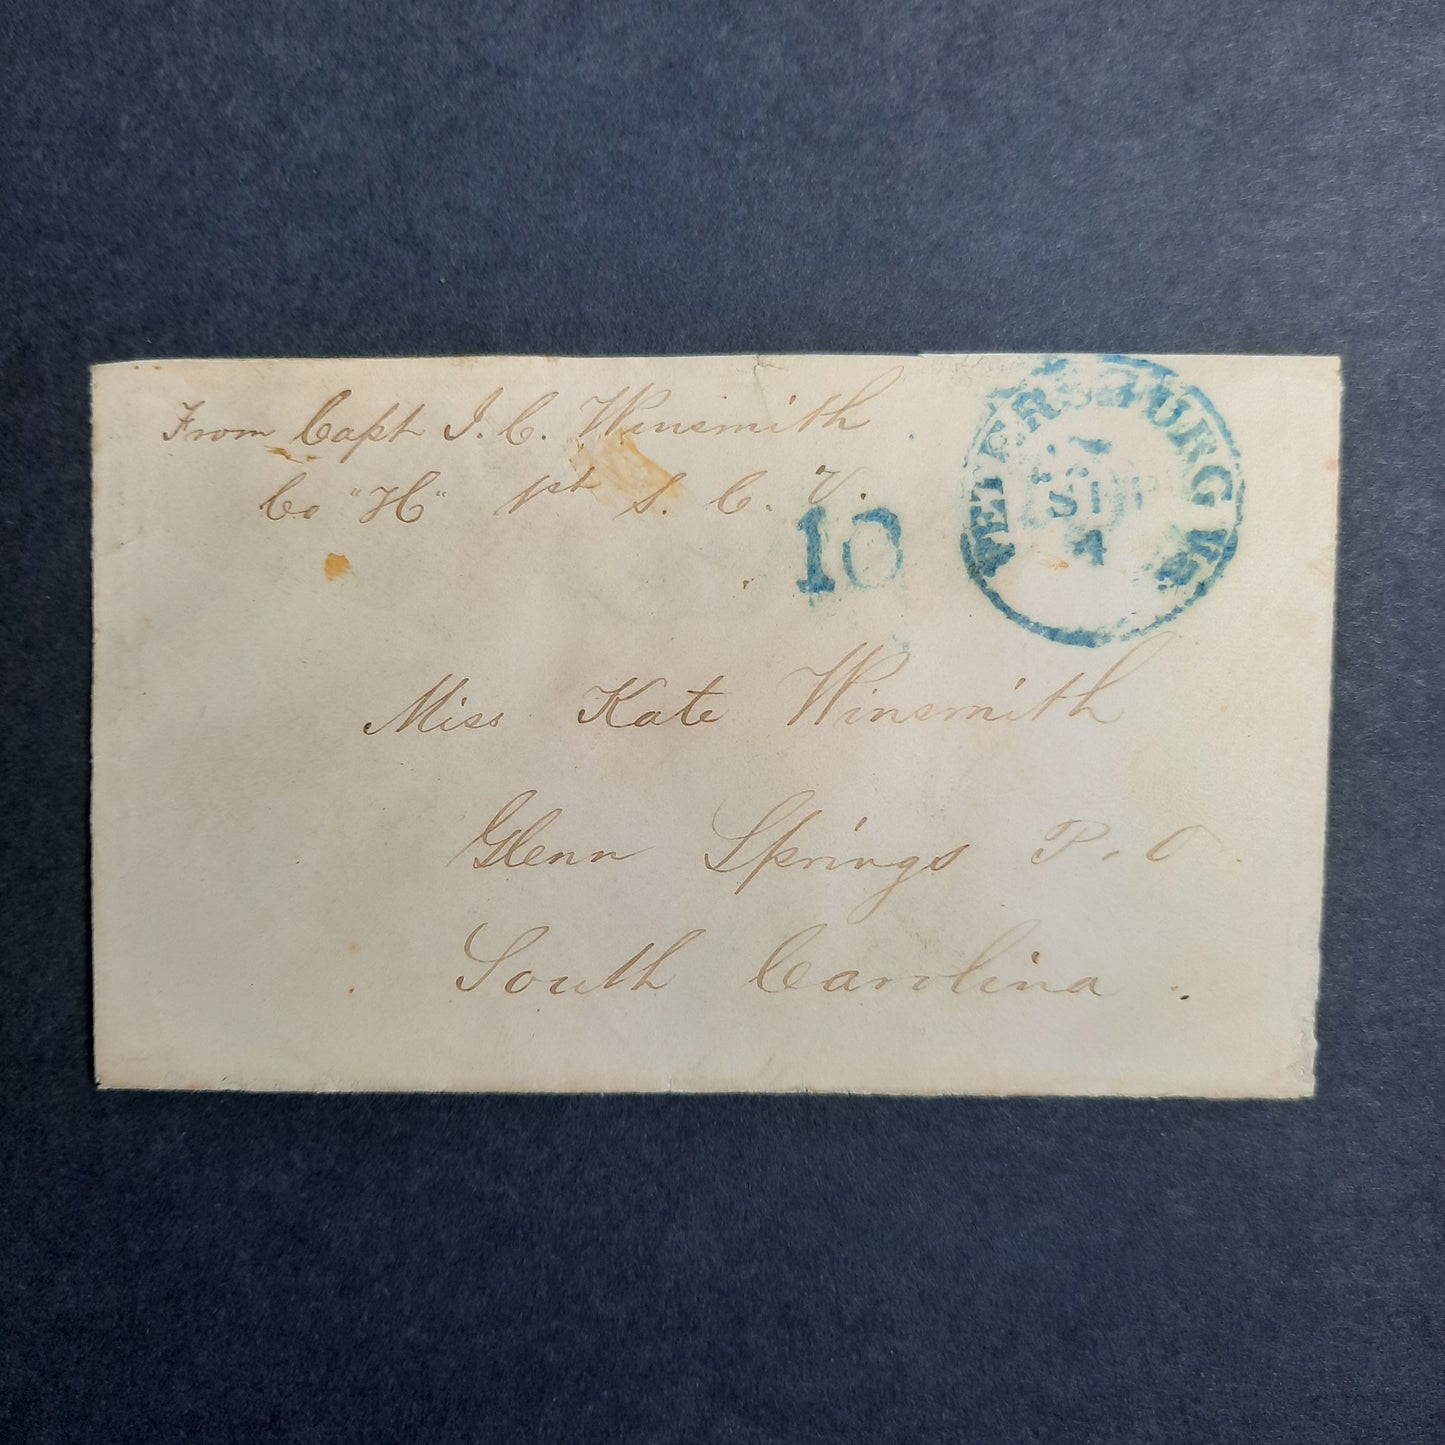 From Capt J. C. Winsmith
Co "H" 1st S. C. V.
10
PETERSBURG Va
SEP
4
Miss Kate Winsmith
Glenn Springs P. O.
South Carolina.